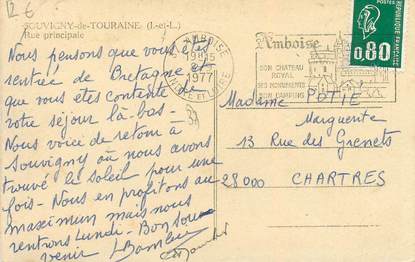 12 €
SOUVIGNY-de-TOURAINE (I.-et-L.)
Rue principale
Nous pensons que vous êtes
rentrée de Bretagne et
que vous êtes contente de
votre séjour là-bas-
Nous voici de retour à
Souvigny où nous avons
trouvé le soleil pour une
fois- Nous en profitons au
maximum mais nous
rentrons Lundi- Bon Souvenir
AMBOISE
18H15
1977
INDRE ET LOIRE
Amboise
SON CHATEAU
ROYAL
SES MONUMENTS
SON CAMPING
POSTES
0,80
Madame POTIE
Marguerite
13 Rue des Grenets
28000 CHARTRES